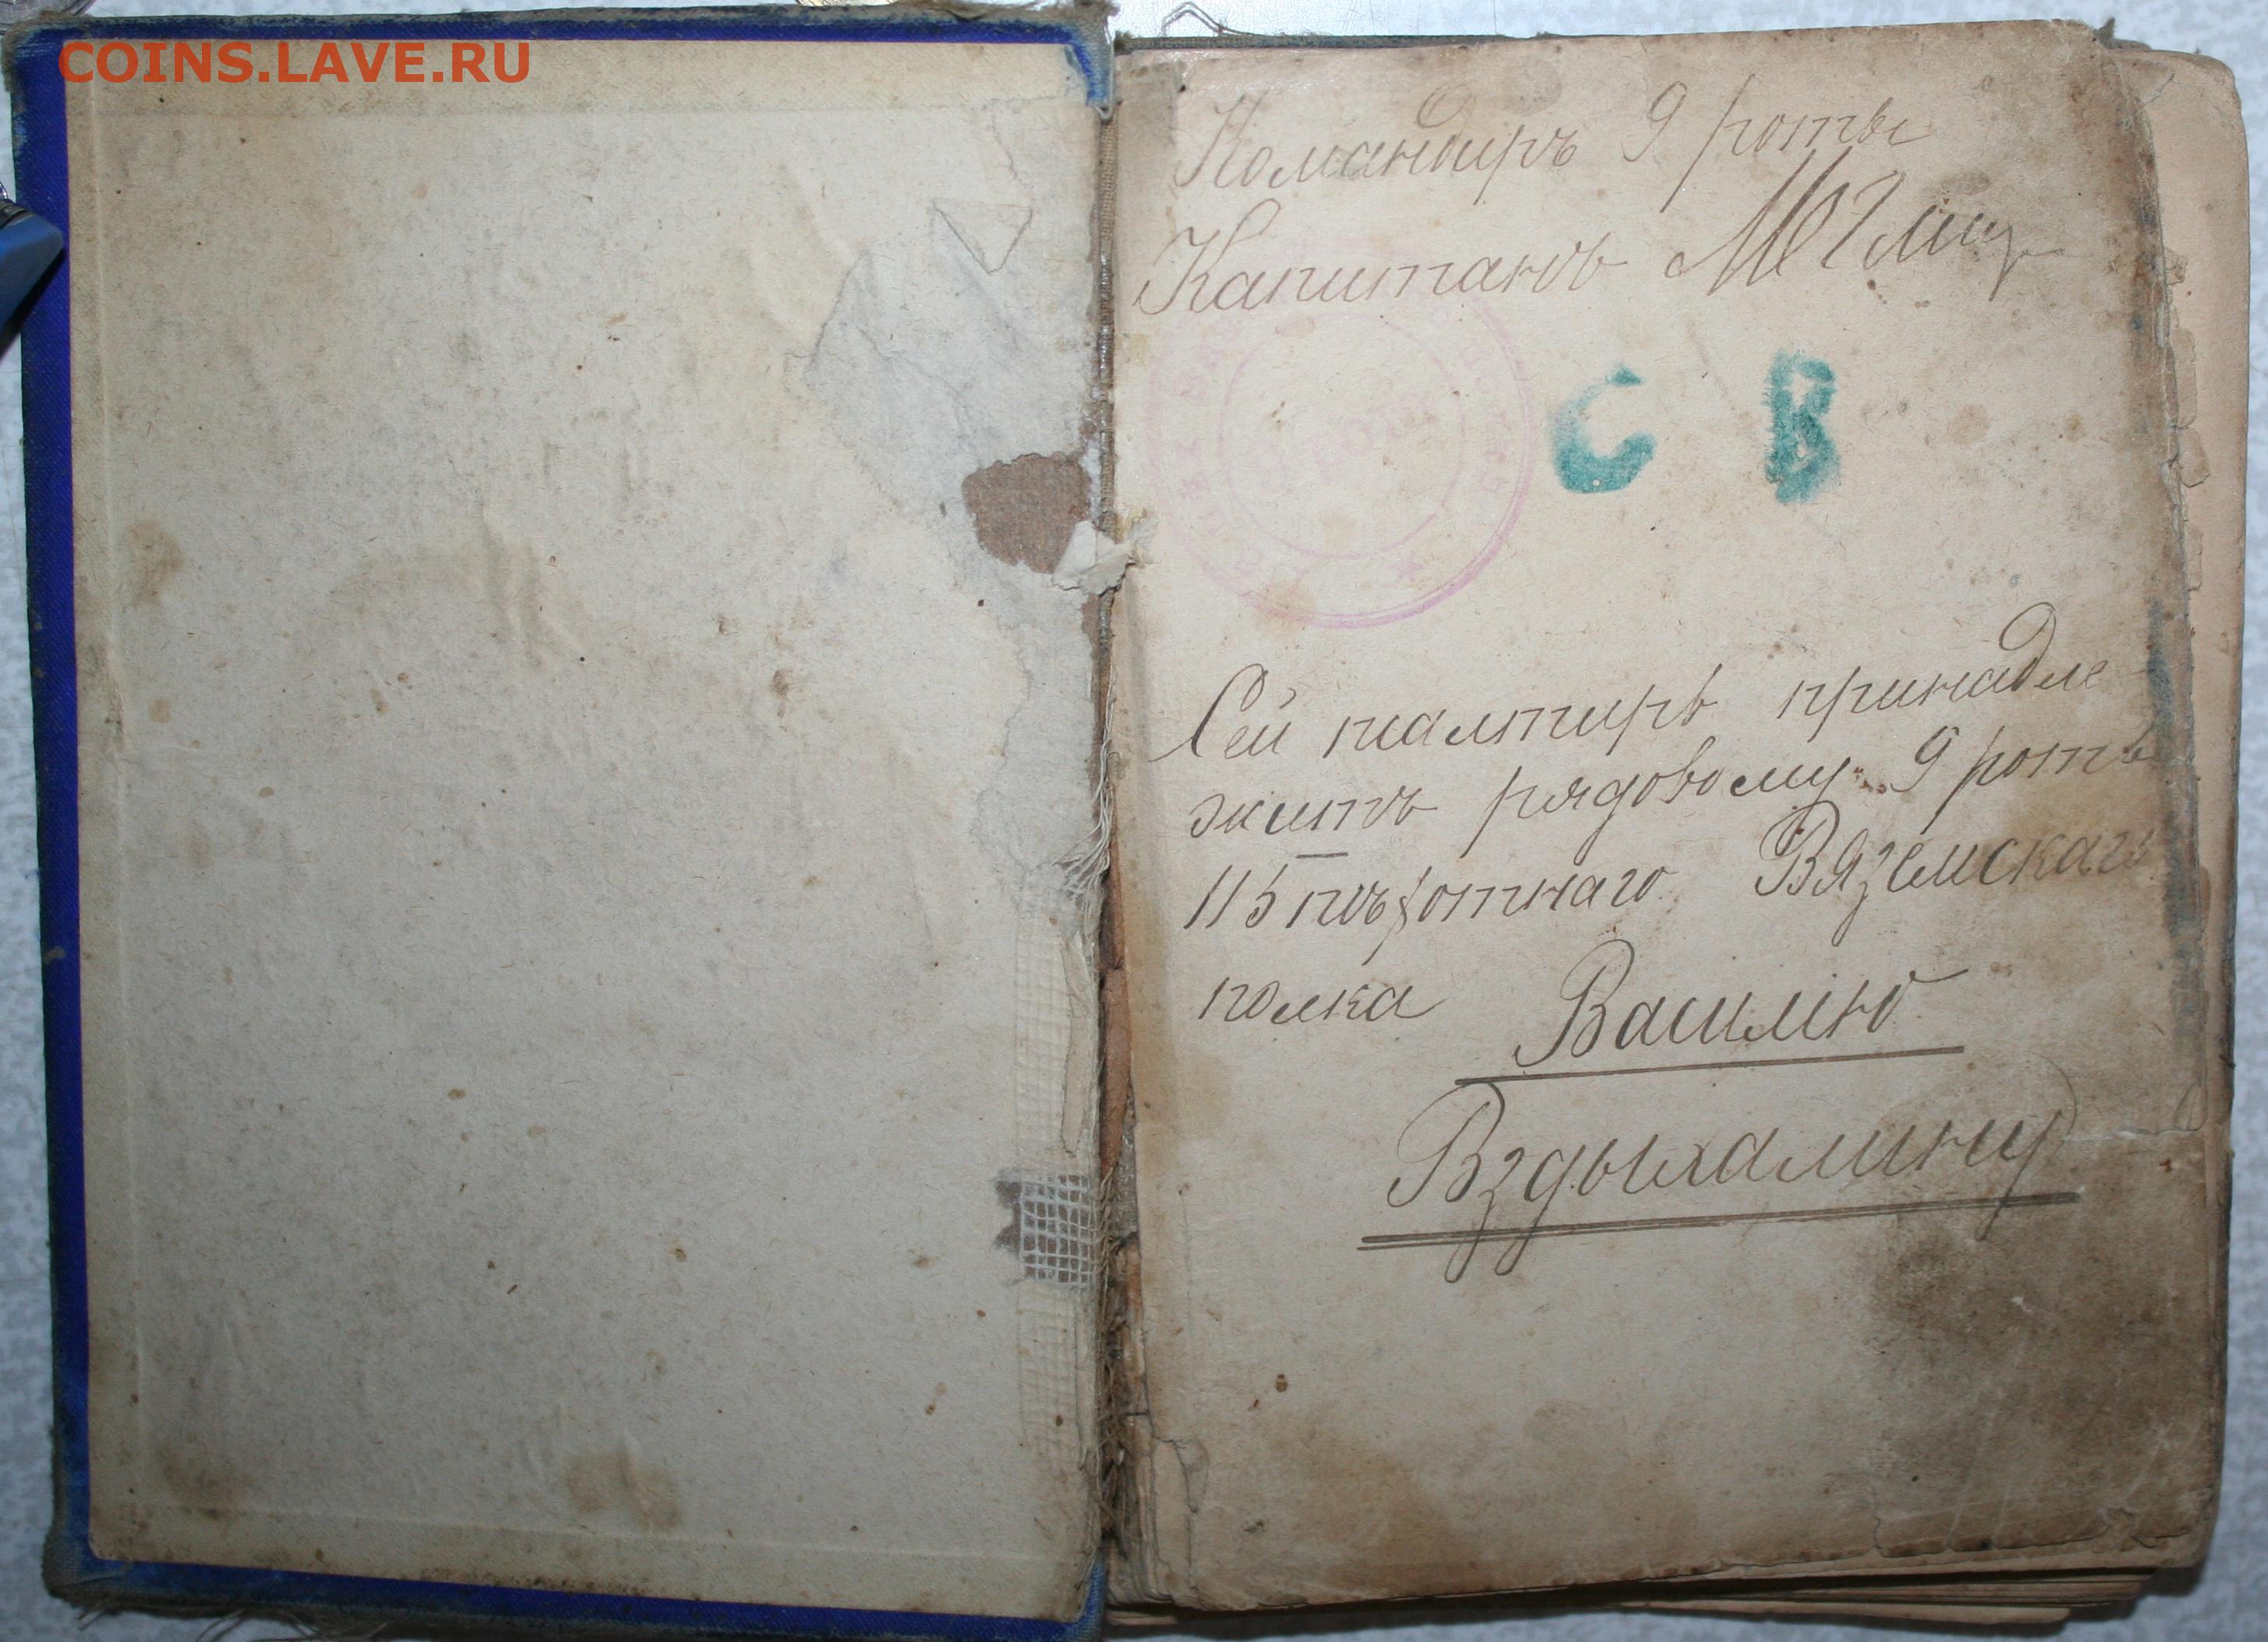 COINS.LAVE.RU
Командиръ 9 роты
Капитанъ
С В
Сей псалтирь принадле
житъ рядовому 9 роты
115 пѣхотнаго Вяземскаго
полка Василию
Вздыхалину